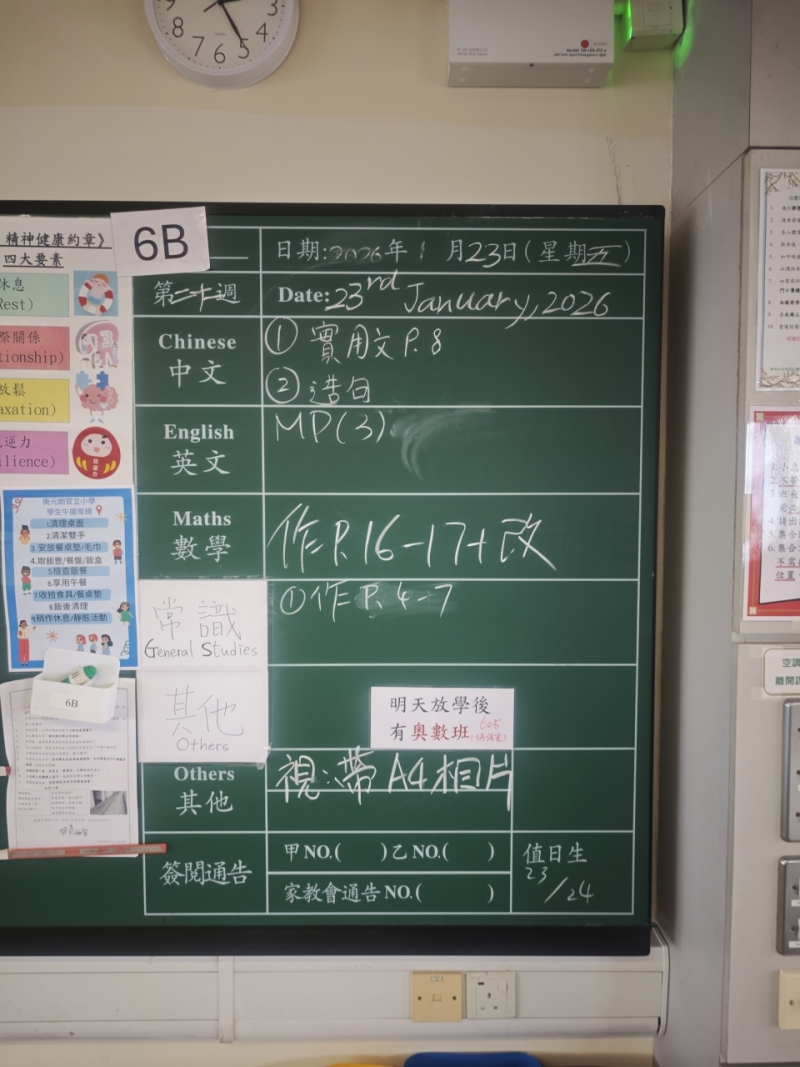 8
7
6
5
4
3
2
精神健康約章》
四大要素
休息
Rest)
際關係
tionship)
放鬆
axation)
逆力
ilience)
6B
日期:2026年1月23日(星期五)
第二十週
Date: 23rd January, 2026
Chinese
中文
① 實用文 P.8
② 造句
English
英文
MP(3)
Maths
數學
作P.16-17+改
常識
General Studies
①作P.4-7
其他
Others
明天放學後
有奧數班
Others
其他
視:帶A4相片
簽閱通告
甲NO.( )乙NO.( )
家教會通告NO.( )
值日生
23/24
南元朗官立小學
學生午膳常規
1清理桌面
2.清潔雙手
3.安放餐桌墊/毛巾
4.取飯壺/餐盤/飯盒
5檢查飯餐
6.享用午餐
7.收拾食具/餐桌墊
8飯後清理
9.稍作休息/靜態活動
6B
空調
離開課